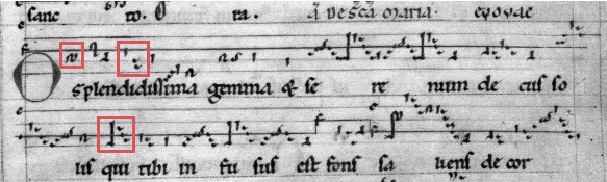 sanc to. O ra. De sca maria. evovae
O splendidissima gemma & se re num de cus so
lis qui tibi in fu sus est fons sa liens de cor